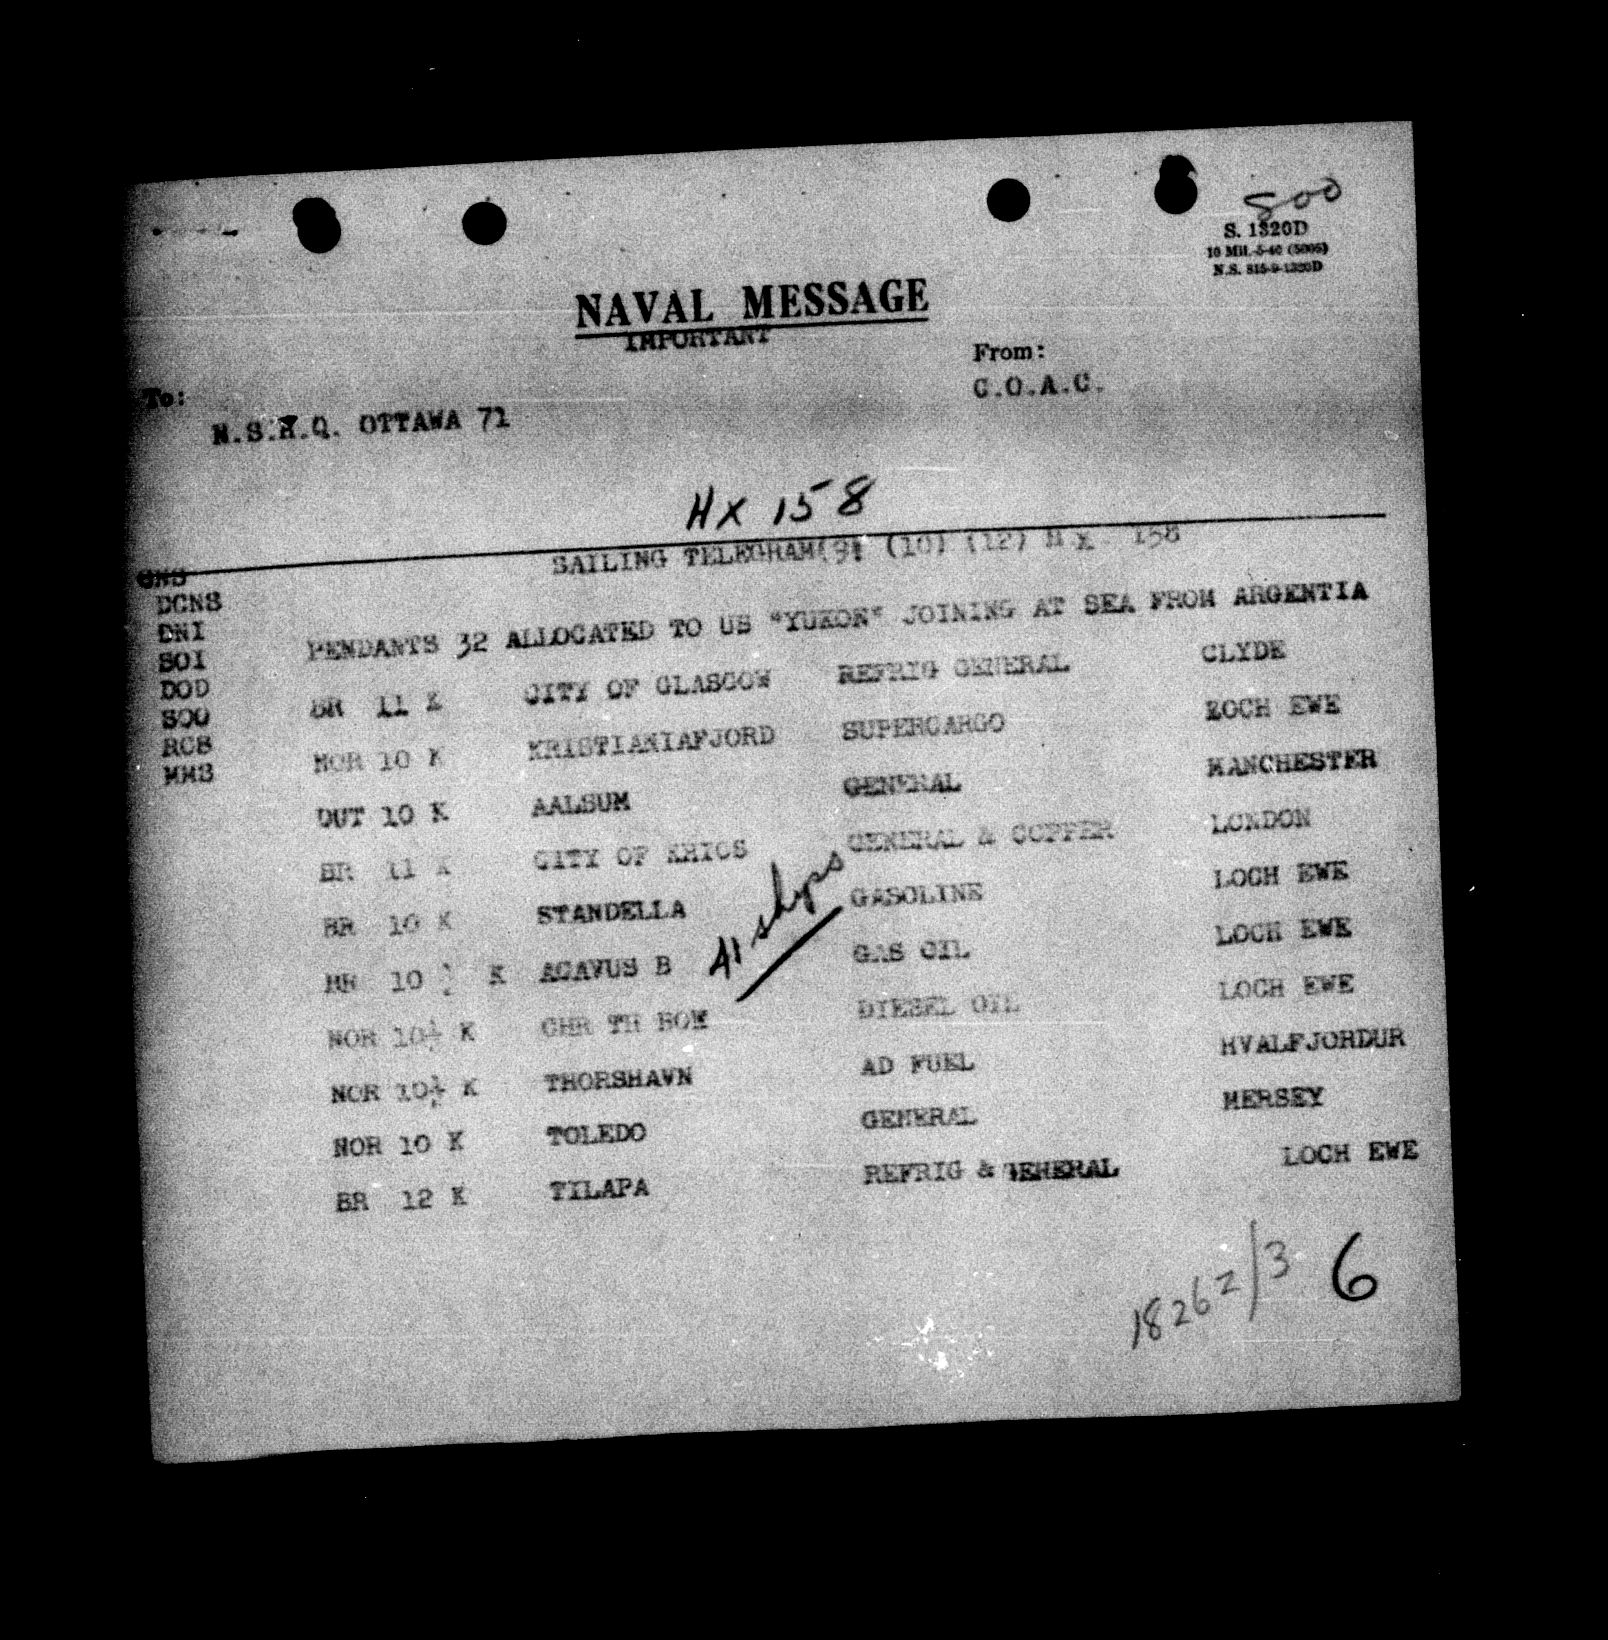 Soo
S. 1320D
10 Mil.-5-40 (5005)
N.S. 815-9-1320D
NAVAL MESSAGE
IMPORTANT
To:
From:
C.O.A.C.
N.S.H.Q. OTTAWA 71
HX 158
SAILING TELEGRAM(9) (10) (12) H X 158
CNS
DCNS
DNI
SOI
DOD
SOO
RCS
MMS
PENDANTS 32 ALLOCATED TO US "YUKON" JOINING AT SEA FROM ARGENTIA
BR 11 K CITY OF GLASGOW REFRIG GENERAL CLYDE
NOR 10 K KRISTIANIAFJORD SUPERCARGO LOCH EWE
DUT 10 K AALSUM GENERAL MANCHESTER
BR 11 K CITY OF KHIOS GENERAL & COPPER LONDON
BR 10 K STANDELLA GASOLINE LOCH EWE
10 K AGAVUS B GAS OIL LOCH EWE
NOR 10½ K CHR TH BOM DIESEL OIL LOCH EWE
NOR 10½ K THORSHAVN AD FUEL HVALFJORDUR
NOR 10 K TOLEDO GENERAL MERSEY
BR 12 K TILAPA REFRIG & GENERAL LOCH EWE
41 ships
1826Z/3 6